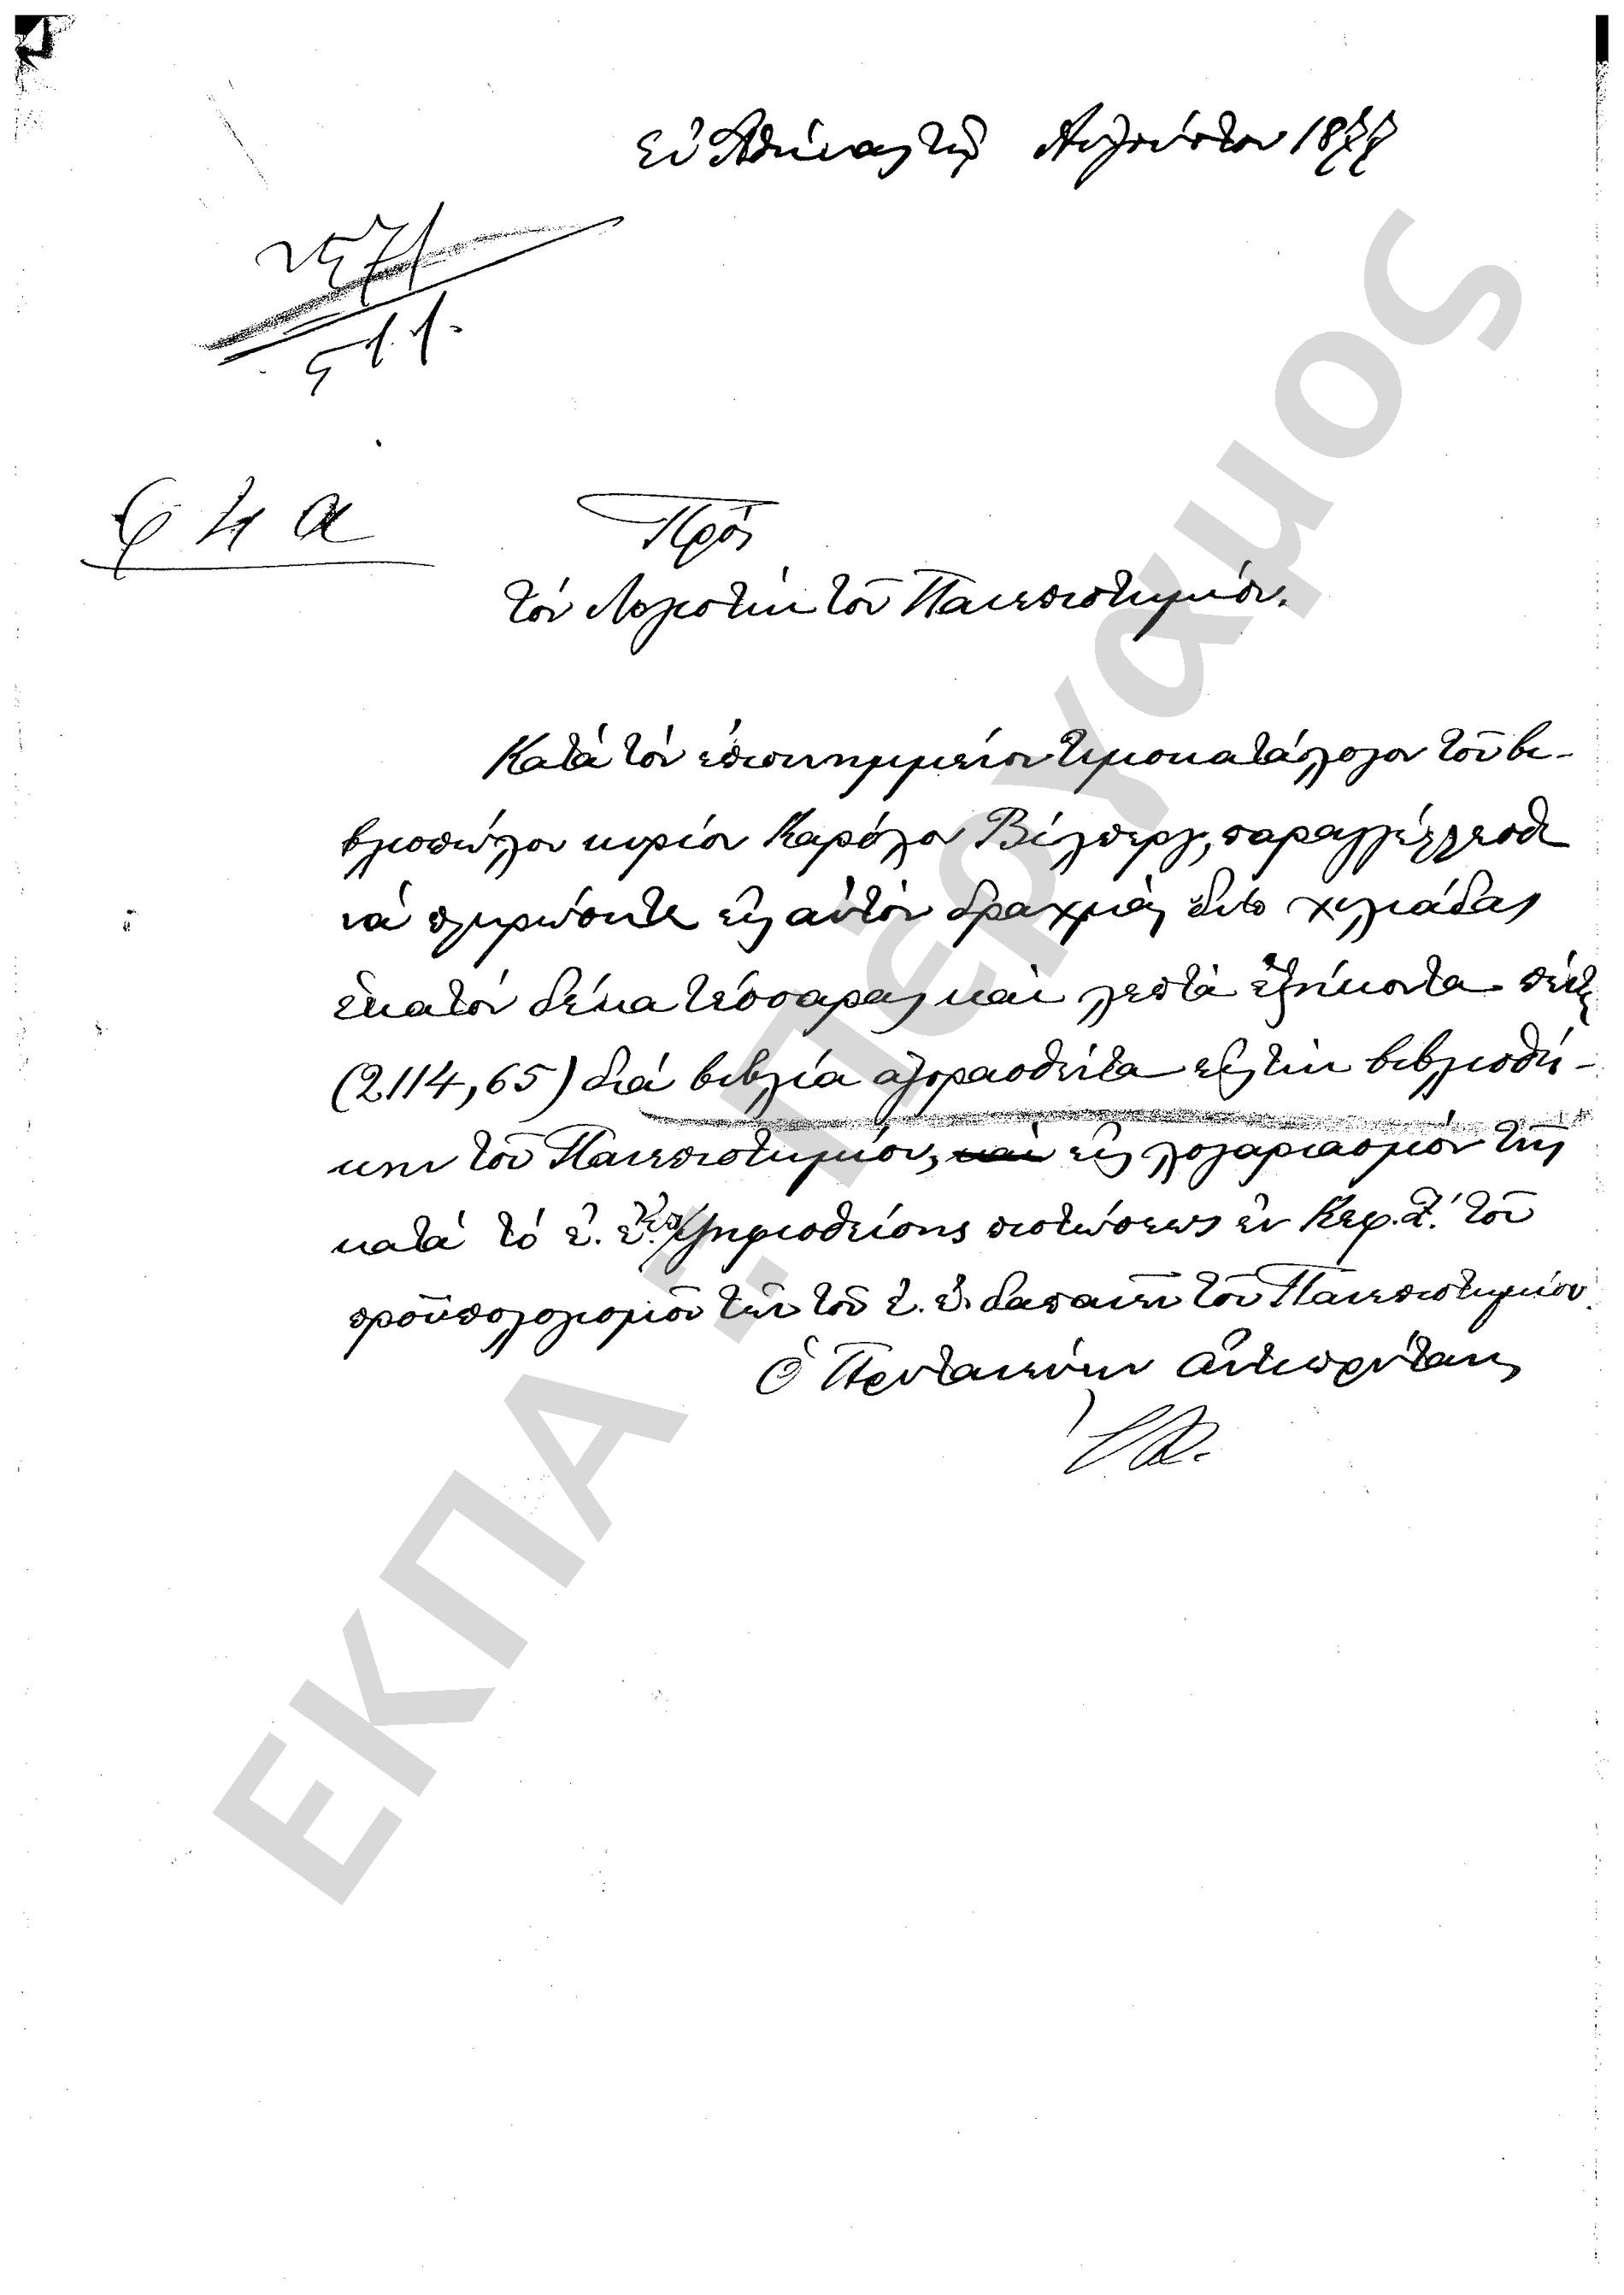 Ἐν Ἀθήναις τῇ Αὐγούστου 1877
2571
511.
φ 4 α
Πρὸς
τὸν Λογιστὴν τοῦ Πανεπιστημίου.
Κατὰ τὸν ἐπισυνημμένον τιμοκατάλογον τοῦ βι-
βλιοπώλου κυρίου Καρόλου Βίλπεργ, παραγγέλλεσθε
νὰ πληρώσητε εἰς αὐτὸν δραχμὰς δύο χιλιάδας
ἑκατὸν δέκα τέσσαρας καὶ λεπτὰ ἑξήκοντα πέντε
(2114,65) διὰ βιβλία ἀγορασθέντα εἰς τὴν βιβλιοθή-
κην τοῦ Πανεπιστημίου, καὶ εἰς λογαριασμὸν τῆς
κατὰ τὸ ἐ. ἔ. ψηφισθείσης πιστώσεως ἐν Κεφ. Ζ.' τοῦ
προϋπολογισμοῦ τῶν τοῦ ἐ. ἔ. δαπανῶν τοῦ Πανεπιστημίου.
Ὁ Πρυτανεύων Ἀντιπρύτανις
ΕΚΠΑ - Πέργαμος